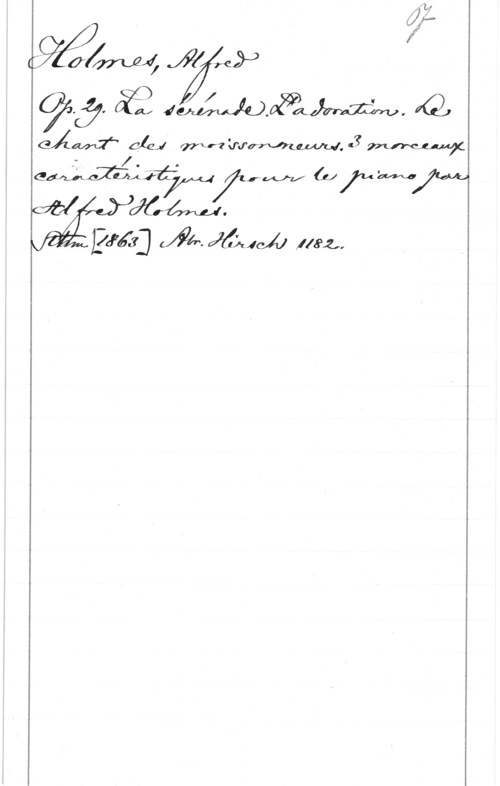 Holmes, Alfred
Op. 29. La sérénade. L'adoration. Le
chant des moissonneurs. 3 morceaux
caractéristiques pour le piano par
Alfred Holmes.
Sthm [1863] Abr. Hirsch 1182.